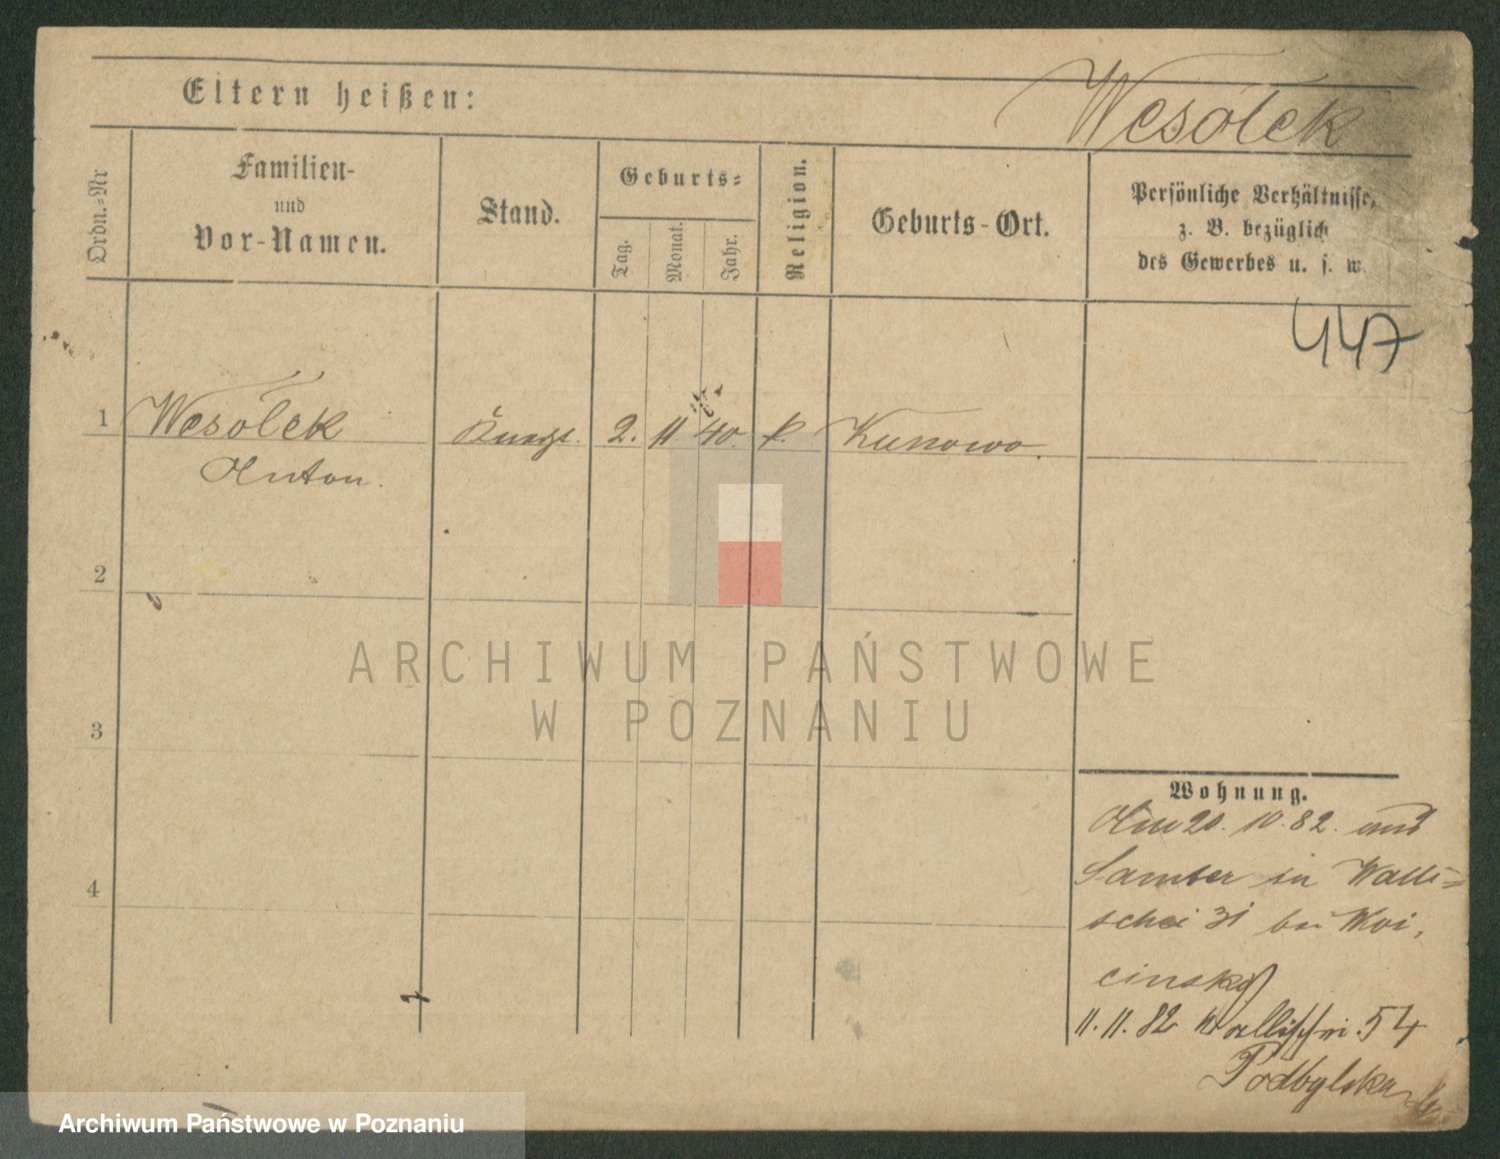 Eltern heißen:
Wesołek
Ordn.-Nr
Familien-
und
Vor-Namen.
Stand.
Geburts-
Tag.
Monat.
Jahr.
Religion.
Geburts-Ort.
Persönliche Verhältnisse,
z. B. bezüglich
des Gewerbes u. s. w.
447
1 Wesołek 2. 11 40. k. Kunowo.
Anton.
2
3
4
ARCHIWUM PAŃSTWOWE
W POZNANIU
Wohnung.
20. 10. 82. aus
Samter in Walli-
schei 31 bei Woi,
cinsky
11. 11. 82 Wallischei. 54
Podbylska
Archiwum Państwowe w Poznaniu